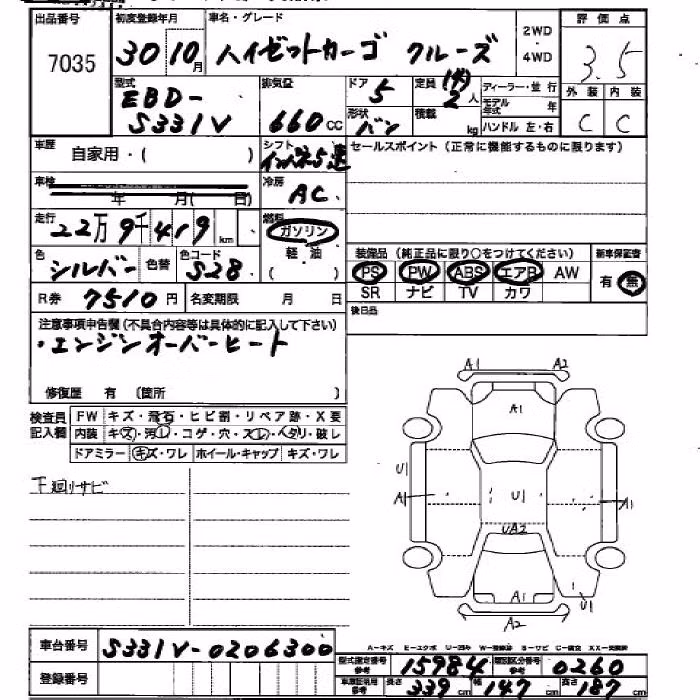 出品番号 初度登録年月 車名・グレード 2WD・4WD 評価点
7035 30 10月 ハイゼットカーゴ クルーズ 3.5
型式 排気量 ドア 定員 ディーラー・並行 外装 内装
EBD-S331V 660cc 5 (4) 2人 モデル年式 年 C C
形状 バン 積載 kg ハンドル 左・右
車歴 自家用・( ) シフト セールスポイント(正常に機能するものに限ります)
車検 年 月( 日) 冷房 AC
走行 22万9千419km 燃料 ガソリン
軽・油
( )
色 シルバー 色替 色コード S28
装備品(純正品に限り○をつけてください) 新車保証書
PS PW ABS エアB AW 有・無
SR ナビ TV カワ
R券 7510円 名変期限 月 日 後日品
注意事項申告欄(不具合内容等は具体的に記入して下さい)
・エンジンオーバーヒート
修復歴 有 (箇所 )
検査員記入欄 FW キズ・飛石・ヒビ割・リペア跡・X要
内装 キズ・汚レ・コゲ・穴・スレ・ヘタリ・破レ
ドアミラー キズ・ワレ ホイール・キャップ キズ・ワレ
下廻リサビ
A1 A2
A1
U1
A1 U1 A1
UA2
A1 U1
A2
車台番号 S331V-0206300
登録番号
型式指定番号 参考 15984 類別区分番号 参考 0260
車庫証明用 参考 長さ 339cm 幅 147cm 高さ 187cm